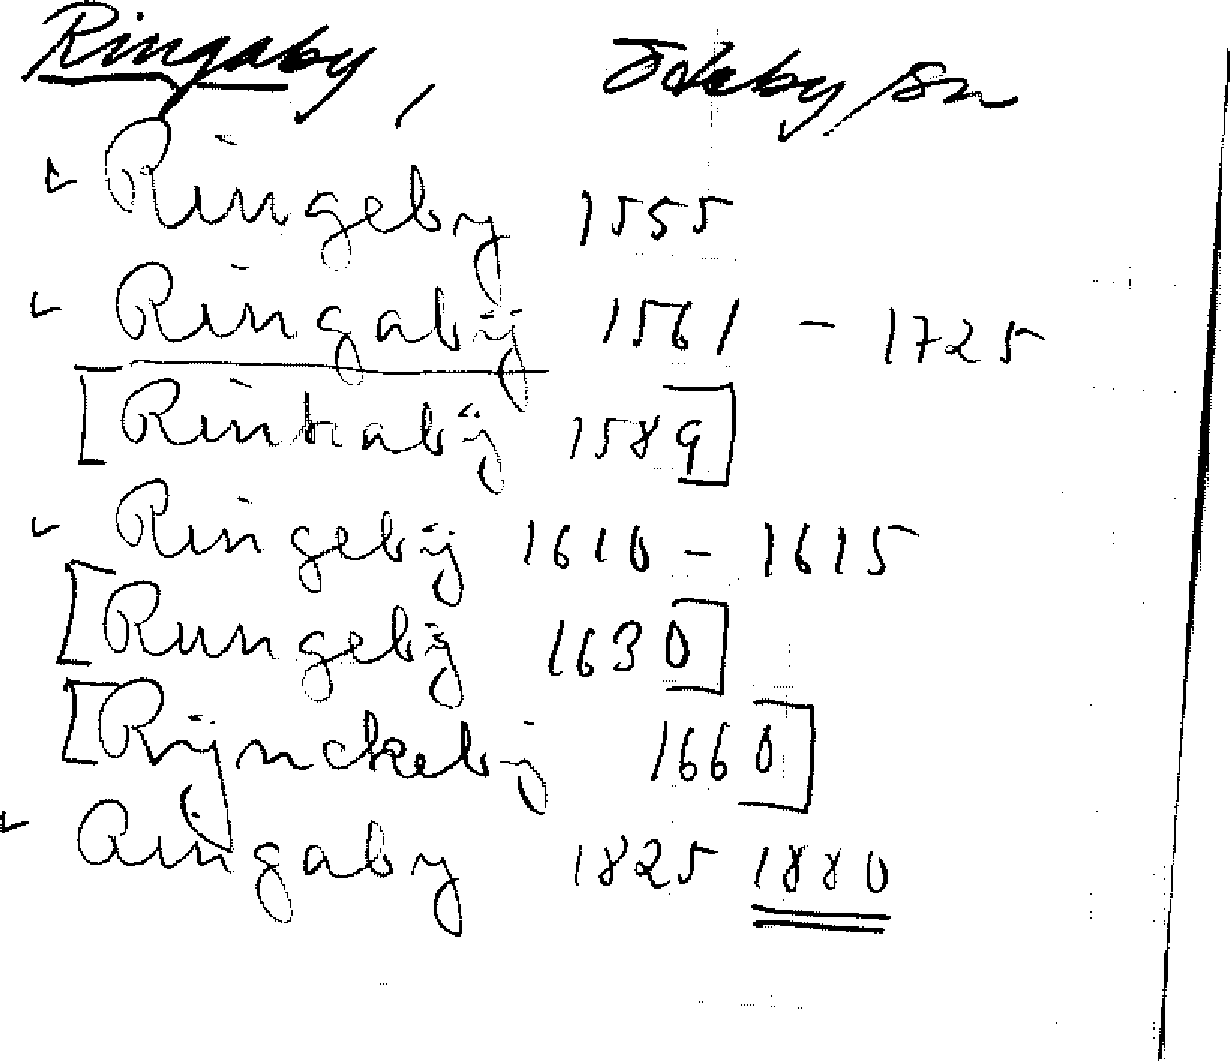 Ringaby, Ökeby sn
Ringeby 1555
Ringabÿ 1561 - 1725
[Rinkabÿ 1589]
Ringebÿ 1610 - 1615
[Rungebÿ 1630]
[Rÿnckebÿ 1660]
Ringaby 1825 1880